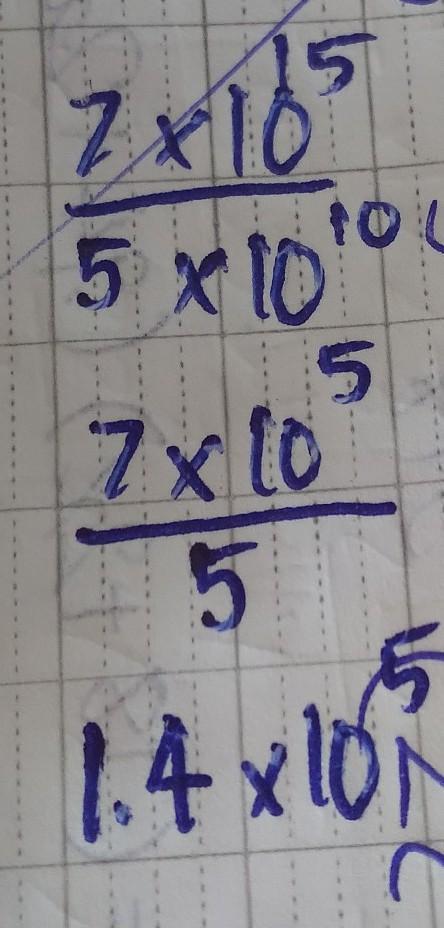 7 × 10¹⁵
5 × 10¹⁰
7 × 10⁵
5
1.4 × 10⁵